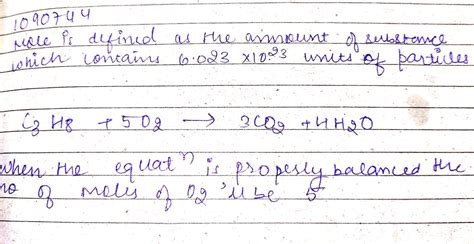 1090744
Mole is defined as the aimount of substance
which contains 6.023 x10^23 units of particles
C3 H8 + 5O2 → 3CO2 + 4H2O
when the equatⁿ is properly balanced the
no of moles of O2 'll be 5